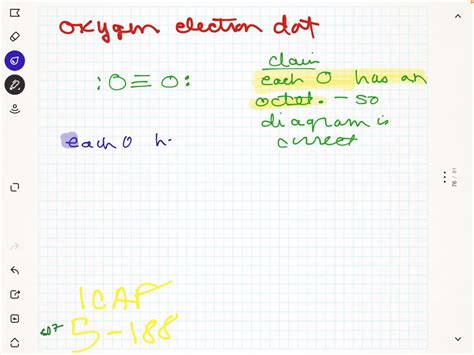 oxygen electron dot
claim
:O≡O:
each O has an
octet. – so
diagram is
correct
each O h
ICAP
5-188
76 / 81